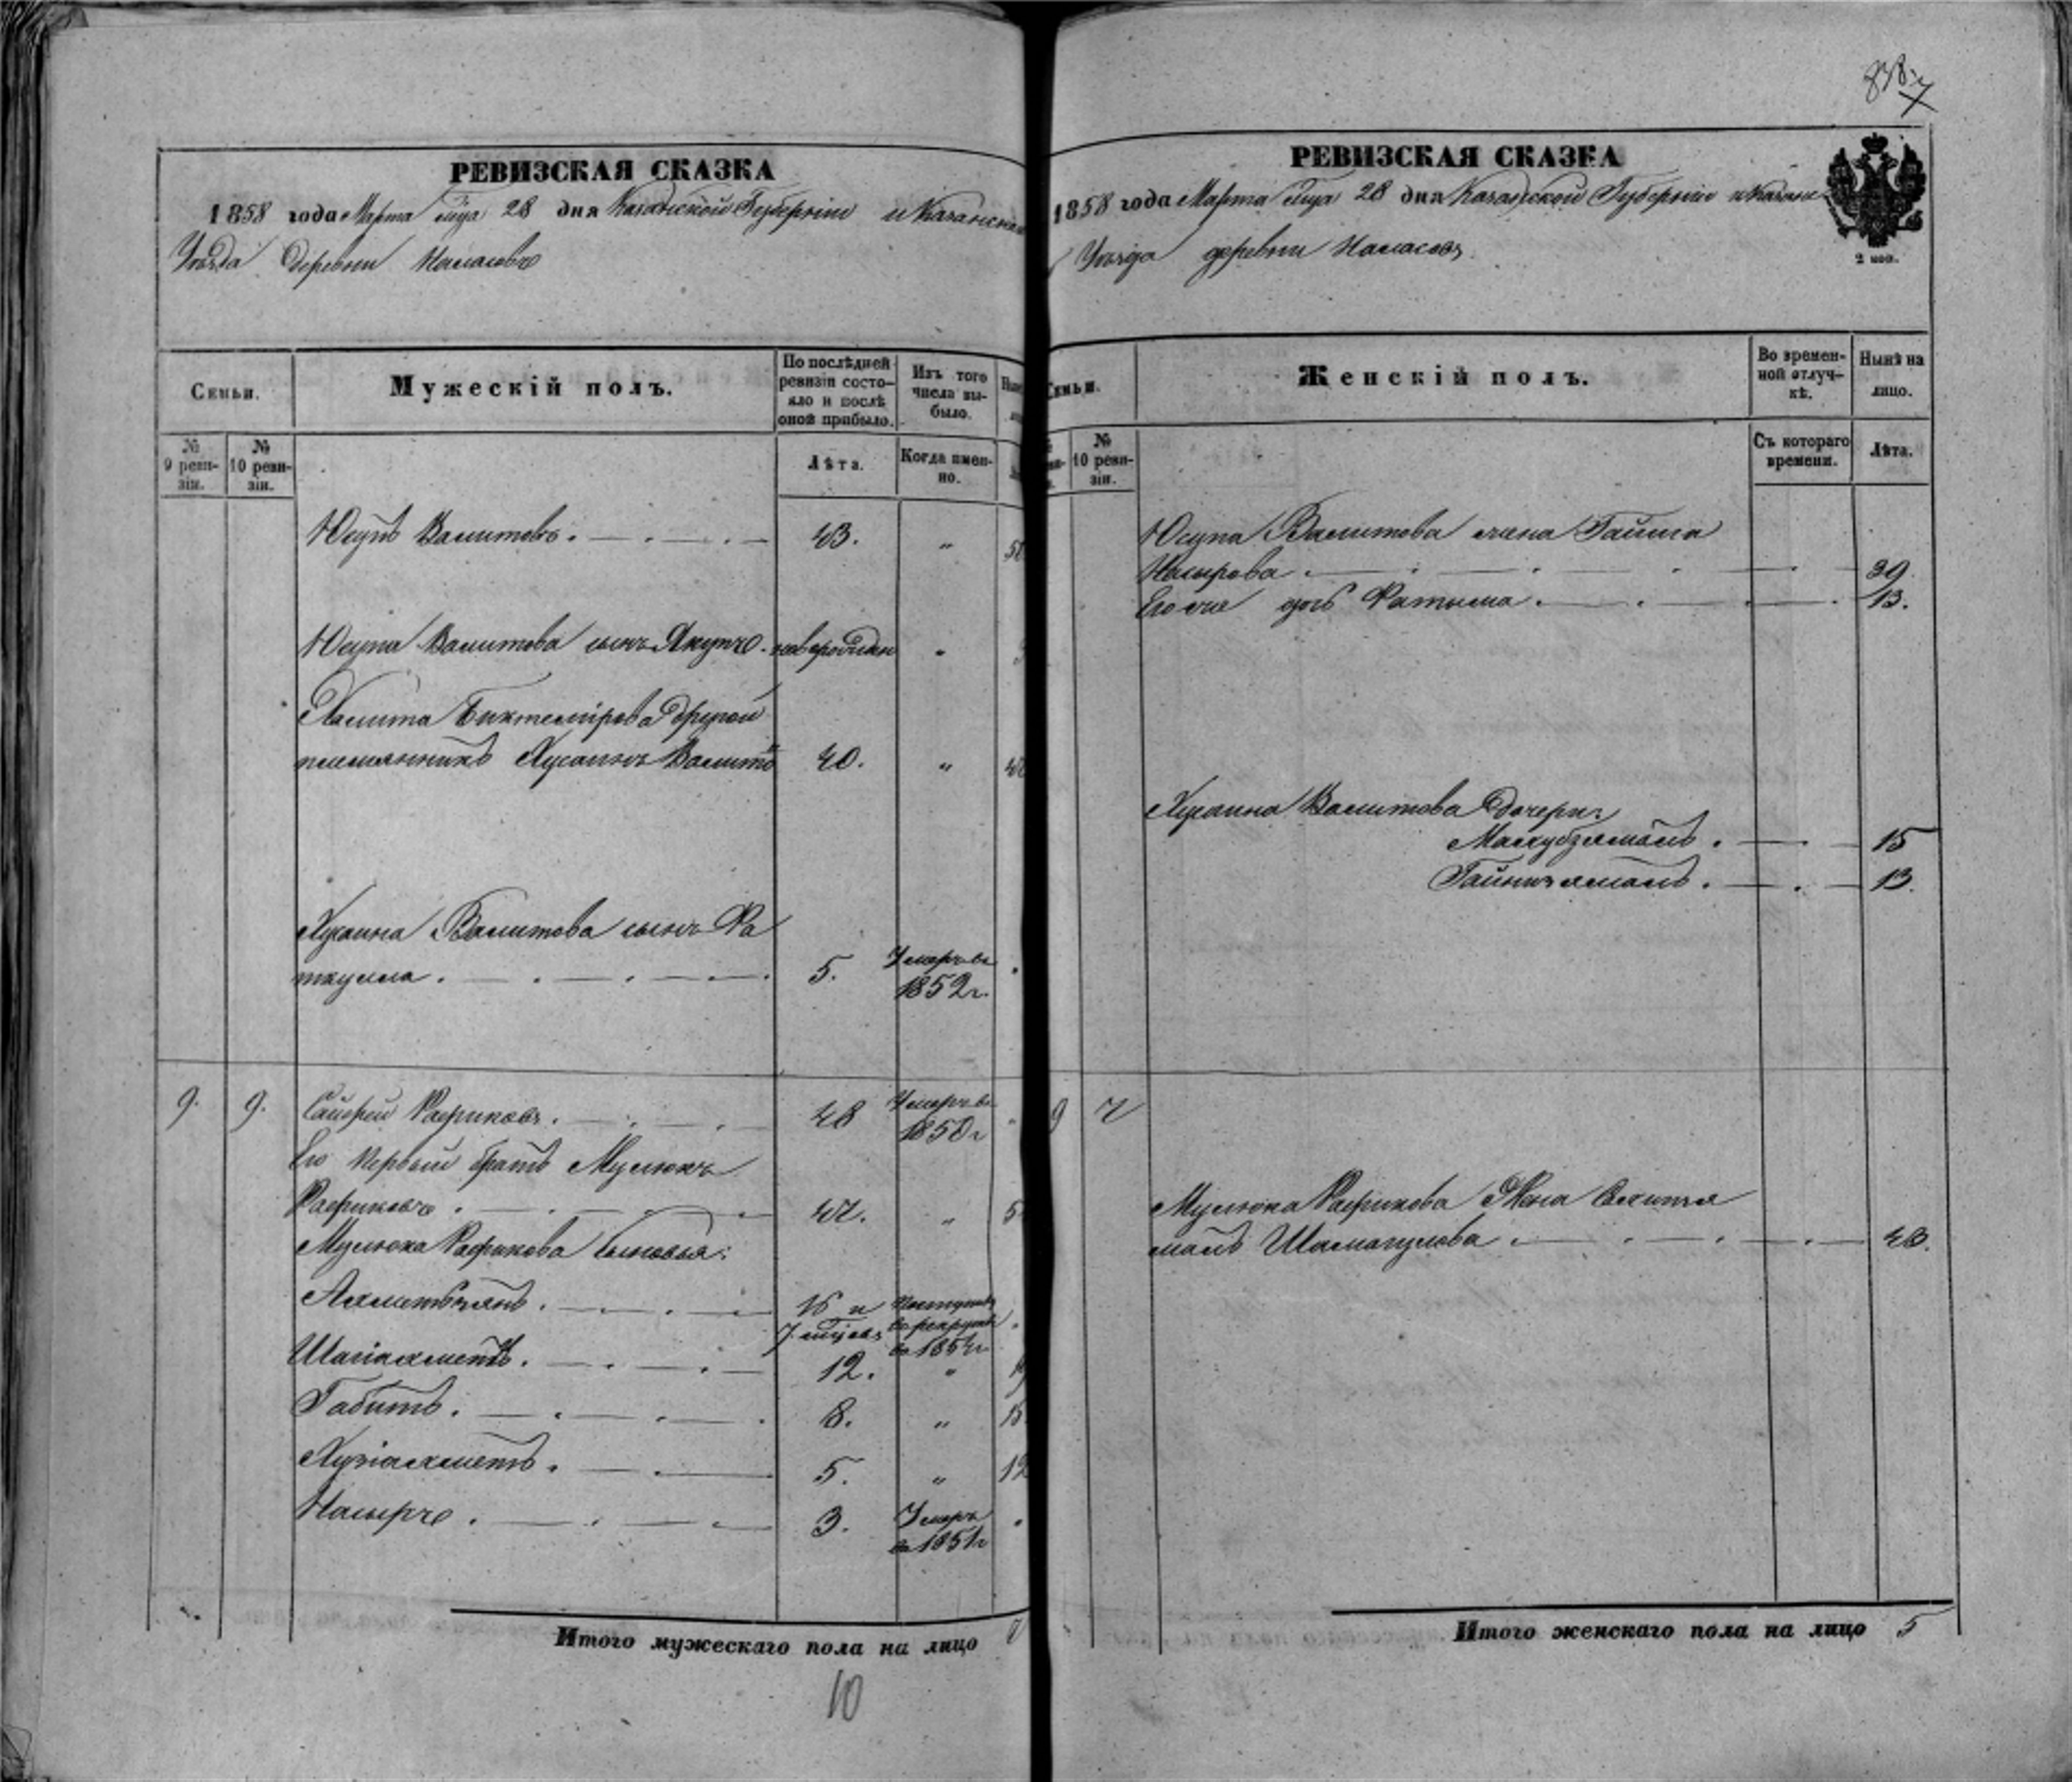 838
7
РЕВИЗСКАЯ СКАЗКА
1858 года Марта м-ца 28 дня Казанской Губерніи и Казанскаго
Уѣзда деревни
Семьи.
Мужескій полъ.
По послѣдней ревизіи состо-
яло и послѣ
оной прибыло.
Изъ того
числа вы-
было.
№
9 реви-
зіи.
№
10 реви-
зіи.
Лѣта.
Когда имен-
но.
Юсупъ Валитовъ. 43. "
Юсупа Валитова сынъ Якупъ. новорожден "
Халита Биктемірова другой
племянникъ Хусаинъ Валитовъ 40. "
Хусаина Валитова сынъ Фа
ткулла. 5. Умеръ въ
1852 г.
9. 9. Сайфей Рафиковъ. 48 Умеръ въ
1850 г
Его первый братъ Мулюкъ
Рафиковъ. 47. "
Мулюка Рафикова сыновья:
Ахметьзянъ. 16 и
7 м-цевъ
Поступилъ
въ рекруты
въ 1854 г
Шагіахметъ. 12. "
Габитъ. 8. " 15
Хузіахметъ. 5. " 12
Насыръ. 3. Умеръ
въ 1851 г
Итого мужескаго пола на лицо 7
10
РЕВИЗСКАЯ СКАЗКА
1858 года Марта м-ца 28 дня Казанской Губерніи и Казанс
Уѣзда деревни
2 коп.
Семьи.
Женскій полъ.
Во времен-
ной отлуч-
кѣ.
Нынѣ на
лицо.
№
10 реви-
зіи.
Съ котораго
времени.
Лѣта.
Юсупа Валитова жена Гайша
Насырова. 39.
Его же дочь Фатыма. 13.
Хусаина Валитова дочери:
15
13.
9 7
Мулюка Рафикова Жена
43.
Итого женскаго пола на лицо 5